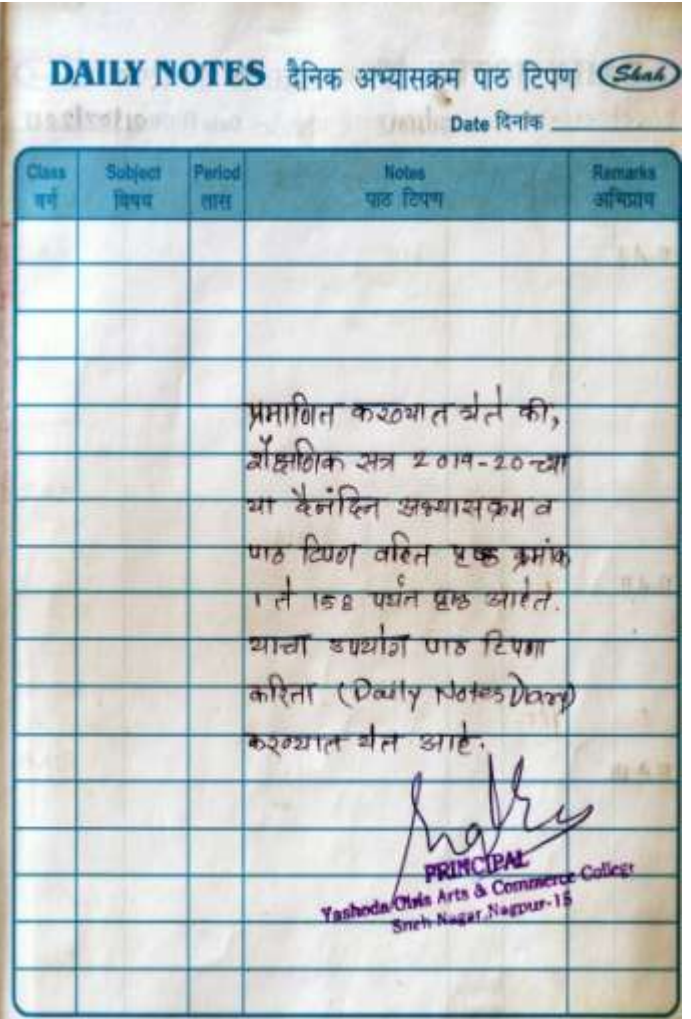 DAILY NOTES दैनिक अभ्यासक्रम पाठ टिपण Shah
Date दिनांक
Class Subject Period Notes Remarks
वर्ग विषय तास पाठ टिपण अभिप्राय
प्रमाणित करण्यात येते की,
शैक्षणिक सत्र 2019-20च्या
या दैनंदिन अभ्यासक्रम व
पाठ टिपण वहित पृष्ठ क्रमांक
1 ते 158 पर्यंत पृष्ठ आहेत.
याचा उपयोग पाठ टिपणा
करिता (Daily Notes Diary)
करण्यात येत आहे.
PRINCIPAL
Yashoda Girls Arts & Commerce College
Sneh Nagar, Nagpur-15